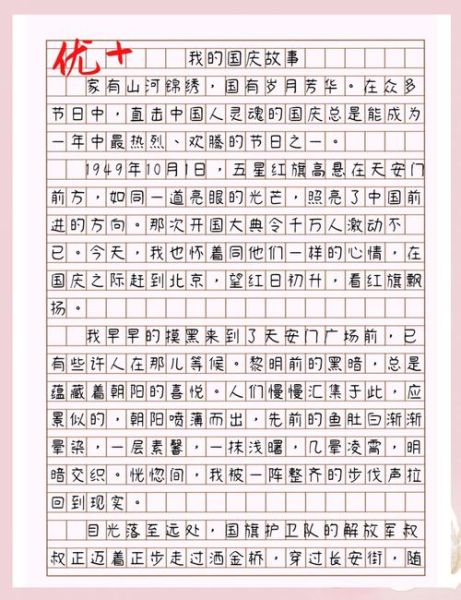 优+
我的国庆故事
家有山河锦绣，国有岁月芳华。在众多
节日中，直击中国人灵魂的国庆总是能成为
一年中最热烈、欢腾的节日之一。
1949年10月1日，五星红旗高悬在天安门
前方，如同一道亮眼的光芒，照亮了中国前
进的方向。那次开国大典令千万人激动不
已。今天，我也怀着同他们一样的心情，在
国庆之际赶到北京，望红日初升，看红旗飘
扬。
我早早的摸黑来到了天安门广场前，已
有些许人在那儿等候。黎明前的黑暗，总是
蕴藏着朝阳的喜悦。人们慢慢汇集于此，应
景似的，朝阳喷薄而出，先前的鱼肚白渐渐
晕染，一层素馨，一抹浅曙，几晕凌霄，明
暗交织。恍惚间，我被一阵整齐的步伐声拉
回到现实。
目光落至远处，国旗护卫队的解放军叔
叔正迈着正步走过洒金桥，穿过长安街，随